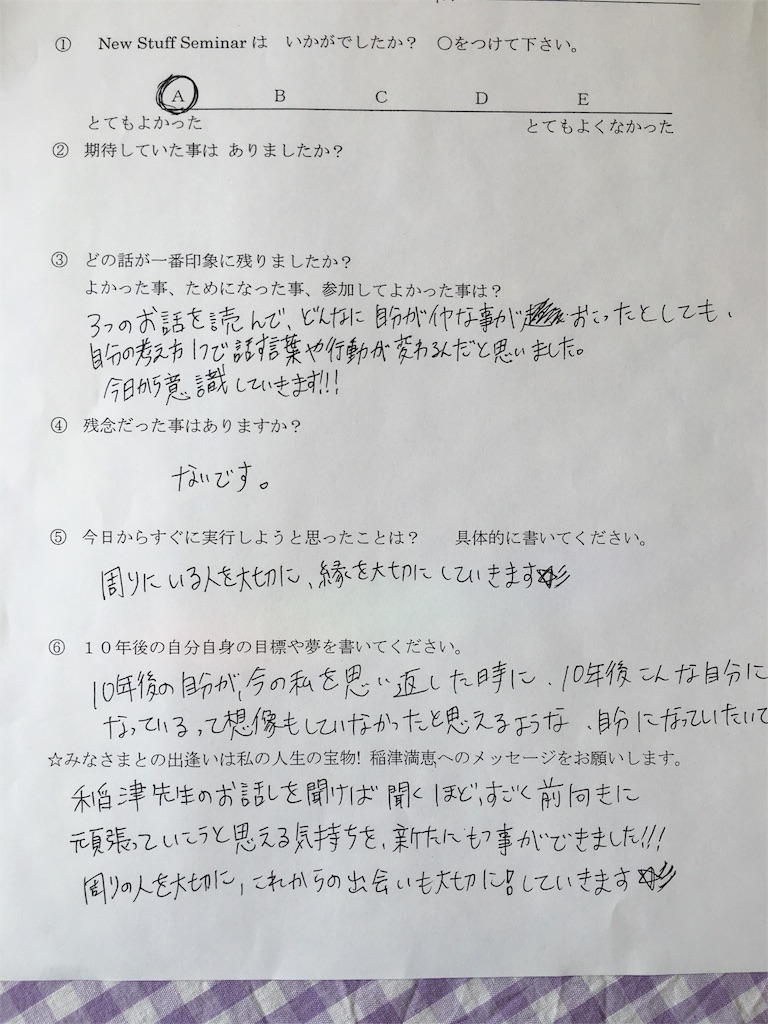 ① New Stuff Seminar は いかがでしたか？ ○をつけて下さい。
A B C D E
とてもよかった とてもよくなかった
② 期待していた事は ありましたか？
③ どの話が一番印象に残りましたか？
よかった事、ためになった事、参加してよかった事は？
3つのお話を読んで、どんなに自分がイヤな事がおこったとしても、
自分の考え方1つで話す言葉や行動が変わるんだと思いました。
今日から意識していきます!!!
④ 残念だった事はありますか？
ないです。
⑤ 今日からすぐに実行しようと思ったことは？ 具体的に書いてください。
周りにいる人を大切に、縁を大切にしていきます☆彡
⑥ １０年後の自分自身の目標や夢を書いてください。
10年後の自分が、今の私を思い返した時に、10年後こんな自分に
なっているって想像もしていなかったと思えるような、自分になっていたいで
☆みなさまとの出逢いは私の人生の宝物! 稲津満恵へのメッセージをお願いします。
稲津先生のお話しを聞けば聞くほど、すごく前向きに
頑張っていこうと思える気持ちを、新たにもつ事ができました!!!
周りの人を大切に、これからの出会いも大切に!していきます☆彡